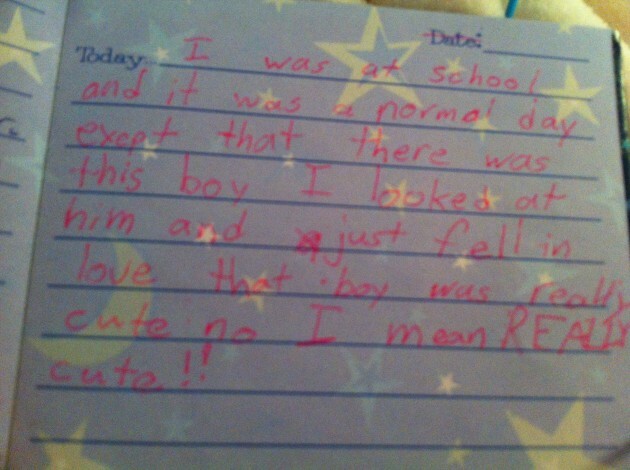 Date:
Today... I was at school
and it was a normal day
except that there was
this boy I looked at
him and just fell in
love that boy was really
cute no I mean REALLY
cute!!